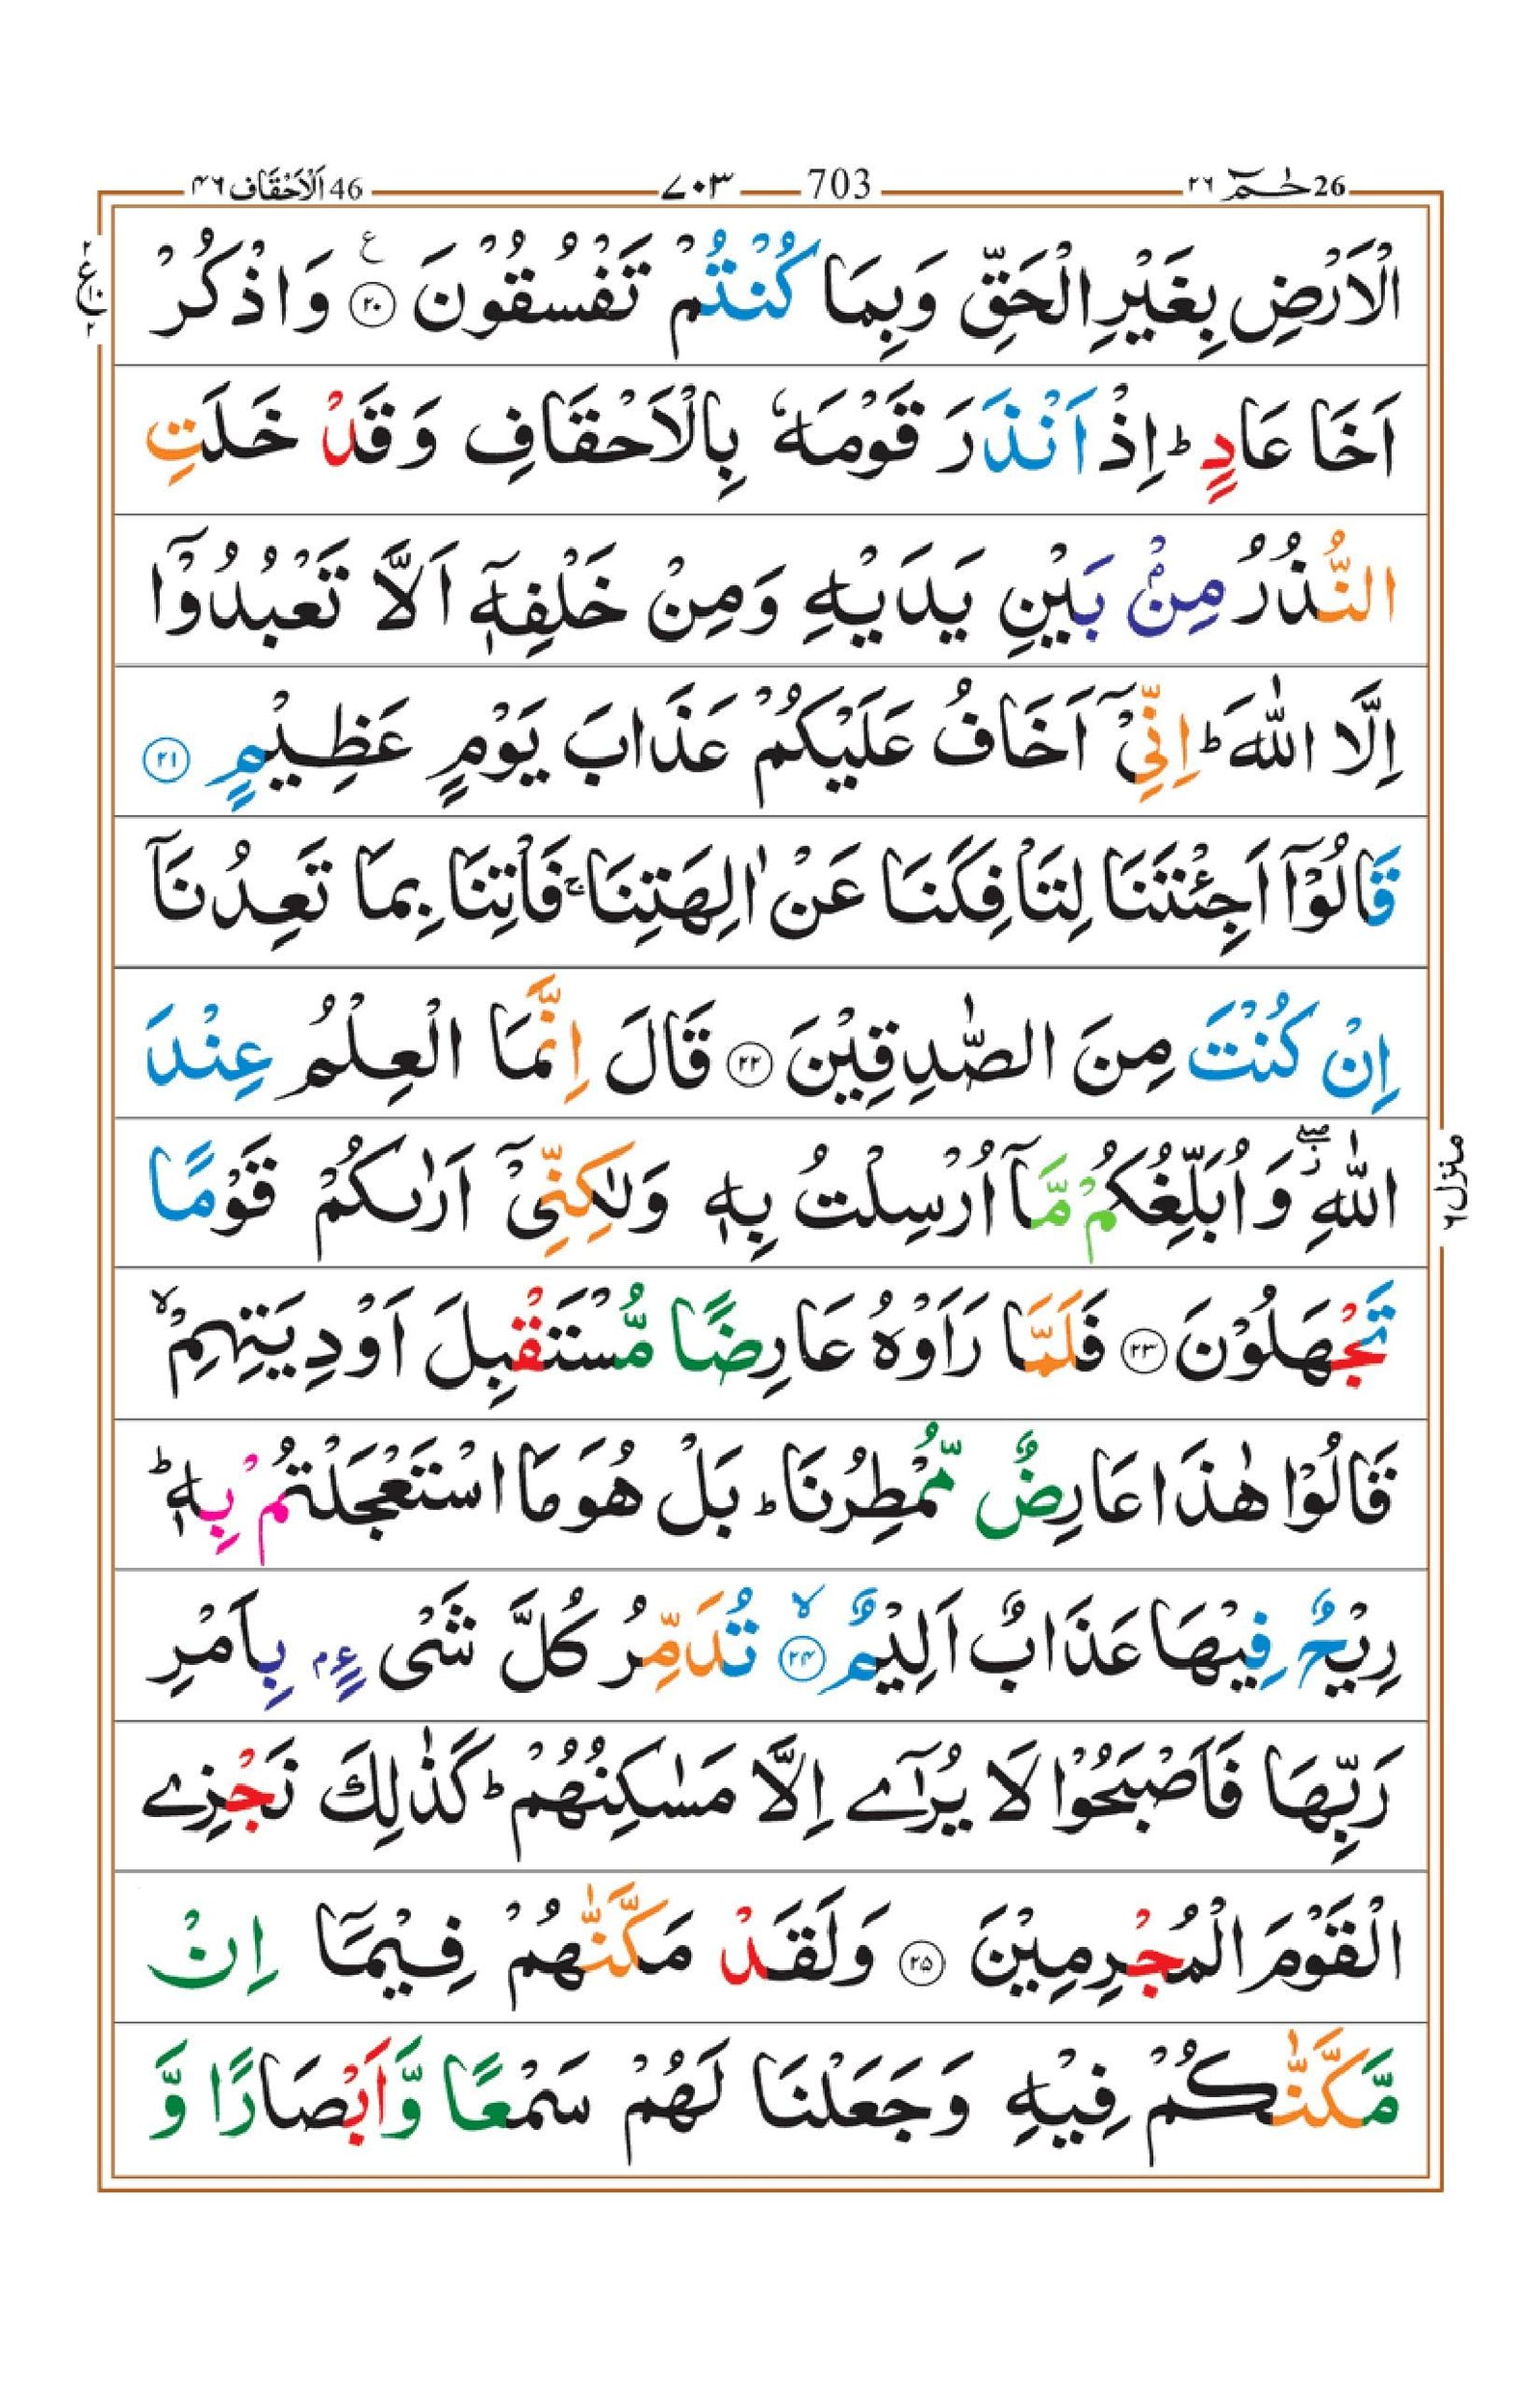 26 حٰـمٓ ٢٦ 703 ٧٠٣ 46 اَلْاَحْقَاف ٤٦
الْاَرْضِ بِغَيْرِ الْحَقِّ وَبِمَا كُنْتُمْ تَفْسُقُوْنَ ﴿۲۰﴾ ع وَاذْكُرْ
ع ٢ ١٠ ٢
اَخَا عَادٍ ؕ اِذْ اَنْذَرَ قَوْمَهٗ بِالْاَحْقَافِ وَقَدْ خَلَتِ
النُّذُرُ مِنْۢ بَيْنِ يَدَيْهِ وَمِنْ خَلْفِهٖۤ اَلَّا تَعْبُدُوْۤا
اِلَّا اللّٰهَ ؕ اِنِّىْۤ اَخَافُ عَلَيْكُمْ عَذَابَ يَوْمٍ عَظِيْمٍ ﴿۲۱﴾
قَالُوْۤا اَجِئْتَنَا لِتَاْفِكَنَا عَنْ اٰلِهَتِنَا ۚ فَاْتِنَا بِمَا تَعِدُنَاۤ
اِنْ كُنْتَ مِنَ الصّٰدِقِيْنَ ﴿۲۲﴾ قَالَ اِنَّمَا الْعِلْمُ عِنْدَ
اللّٰهِ ۖ ز وَاُبَلِّغُكُمْ مَّاۤ اُرْسِلْتُ بِهٖ وَلٰكِنِّىْۤ اَرٰىكُمْ قَوْمًا
منزل ٦
تَجْهَلُوْنَ ﴿۲۳﴾ فَلَمَّا رَاَوْهُ عَارِضًا مُّسْتَقْبِلَ اَوْدِيَتِهِمْ ۙ
قَالُوْا هٰذَا عَارِضٌ مُّمْطِرُنَا ؕ بَلْ هُوَ مَا اسْتَعْجَلْتُمْ بِهٖ ؕ
رِيْحٌ فِيْهَا عَذَابٌ اَلِيْمٌ ۙ ﴿۲۴﴾ تُدَمِّرُ كُلَّ شَىْءٍۭ بِاَمْرِ
رَبِّهَا فَاَصْبَحُوْا لَا يُرٰۤے اِلَّا مَسٰكِنُهُمْ ؕ كَذٰلِكَ نَجْزِے
الْقَوْمَ الْمُجْرِمِيْنَ ﴿۲۵﴾ وَلَقَدْ مَكَّنّٰهُمْ فِيْمَاۤ اِنْ
مَّكَّنّٰكُمْ فِيْهِ وَجَعَلْنَا لَهُمْ سَمْعًا وَّاَبْصَارًا وَّ